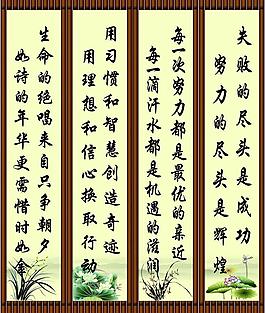 失败的尽头是成功
努力的尽头是辉煌
每一次努力都是最优的亲近
每一滴汗水都是机遇的滋润
用习惯和智慧创造奇迹
用理想和信心换取行动
生命的绝唱来自只争朝夕
如诗的年华更需惜时如金